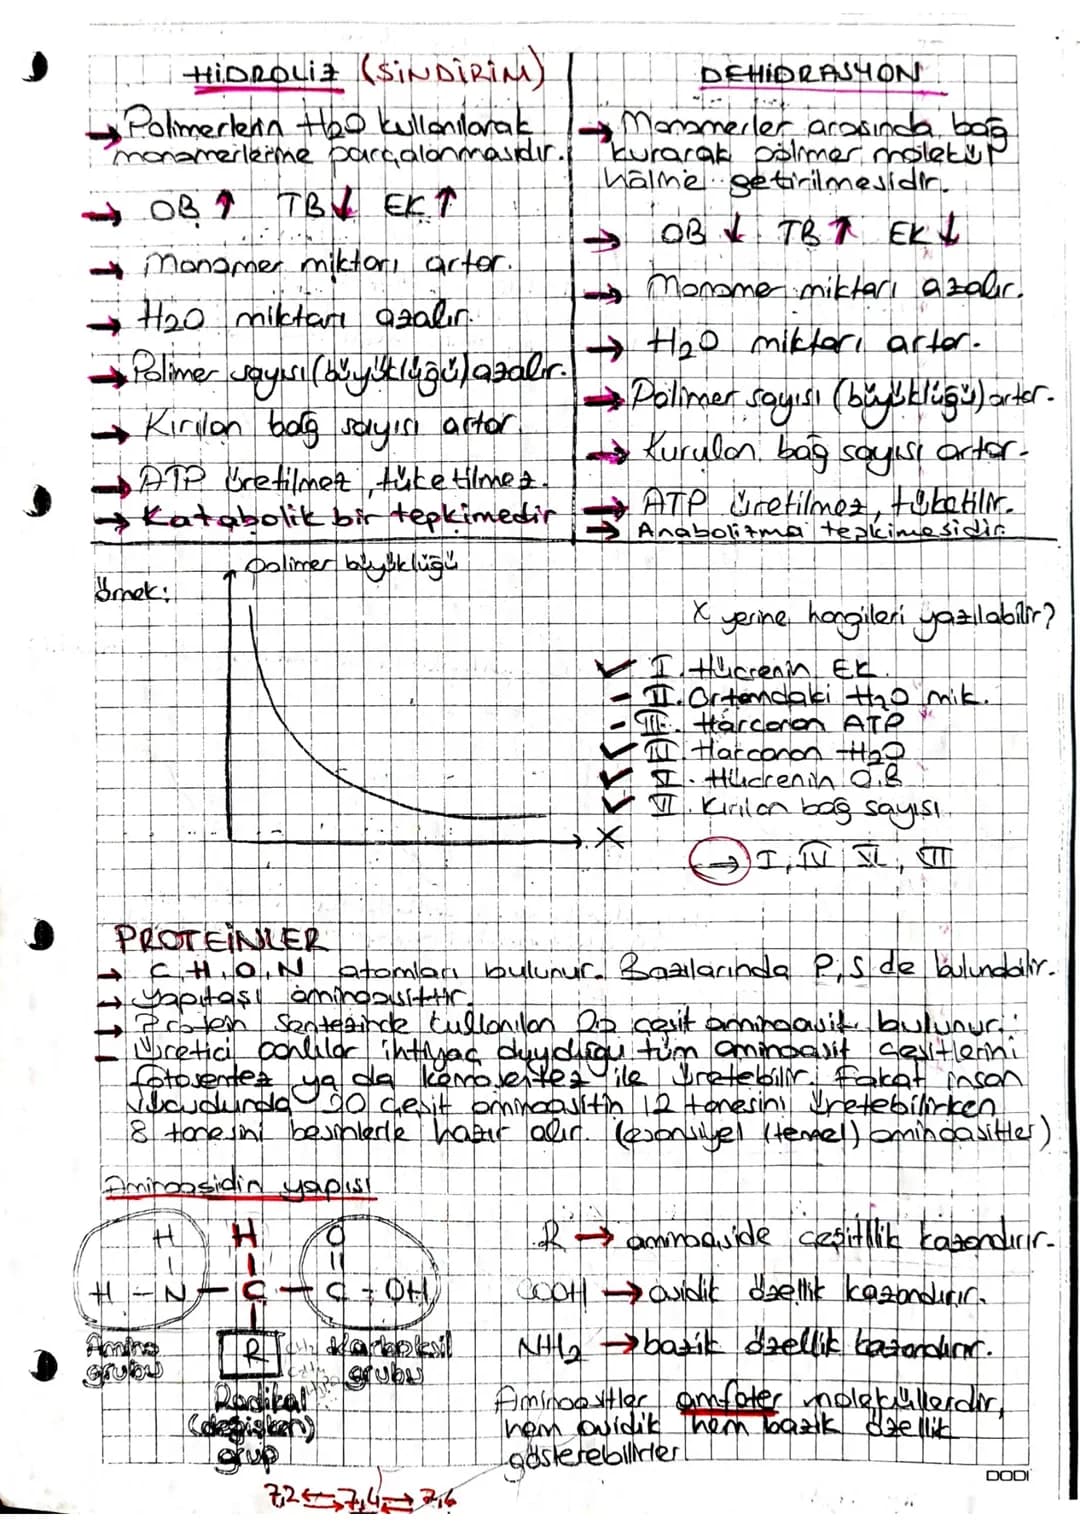 HİDROLİZ (SİNDİRİM)
→ Polimerlerin H2O kullanılarak
monomerlerine parçalanmasıdır.
→ OB ↑ TB ↓ EK ↑
→ Monomer miktarı artar.
→ H2O miktarı azalır.
→ Polimer sayısı (büyüklüğü) azalır.
→ Kırılan bağ sayısı artar
→ ATP üretilmez, tüketilmez.
→ Katabolik bir tepkimedir
DEHİDRASYON
→ Monomerler arasında bağ
kurarak polimer molekül
haline getirilmesidir.
→ OB ↓ TB ↑ EK ↓
→ Monomer miktarı azalır.
→ H2O miktarı artar.
→ Polimer sayısı (büyüklüğü) artar.
→ Kurulan bağ sayısı artar.
→ ATP üretilmez, tüketilir.
→ Anabolizma tepkimesidir.
örnek:
polimer büyüklüğü
X
X yerine hangileri yazılabilir?
✓ I. Hücrenin EK.
- II. Ortamdaki H2O mik.
- III. Harcanan ATP
✓ IV. Harcanan H2O
✓ V. Hücrenin O.B
✓ VI. Kırılan bağ sayısı.
→ I, IV, VI, VII
PROTEİNLER
→ C, H, O, N atomları bulunur. Bazılarında P, S de bulunabilir.
→ Yapıtaşı aminoasittir.
→ Protein sentezinde kullanılan 20 çeşit aminoasit bulunur.
- Üretici canlılar ihtiyaç duyduğu tüm aminoasit çeşitlerini
fotosentez ya da kemosentez ile üretebilir. Fakat insan
vücudunda 20 çeşit aminoasitin 12 tanesini üretebilirken
8 tanesini besinlerle hazır alır. (esansiyel (temel) aminoasitler)
Aminoasidin yapısı
H H O
H - N - C - C - OH
R
Amino
grubu
Karboksil
grubu
Radikal
(değişken)
grup
R → aminoaside çeşitlilik kazandırır.
COOH → asidik özellik kazandırır.
NH2 → bazik özellik kazandırır.
Aminoasitler amfoter moleküllerdir,
hem asidik hem bazik özellik
gösterebilirler.
DODI
7,2 ← 7,4 → 7,6